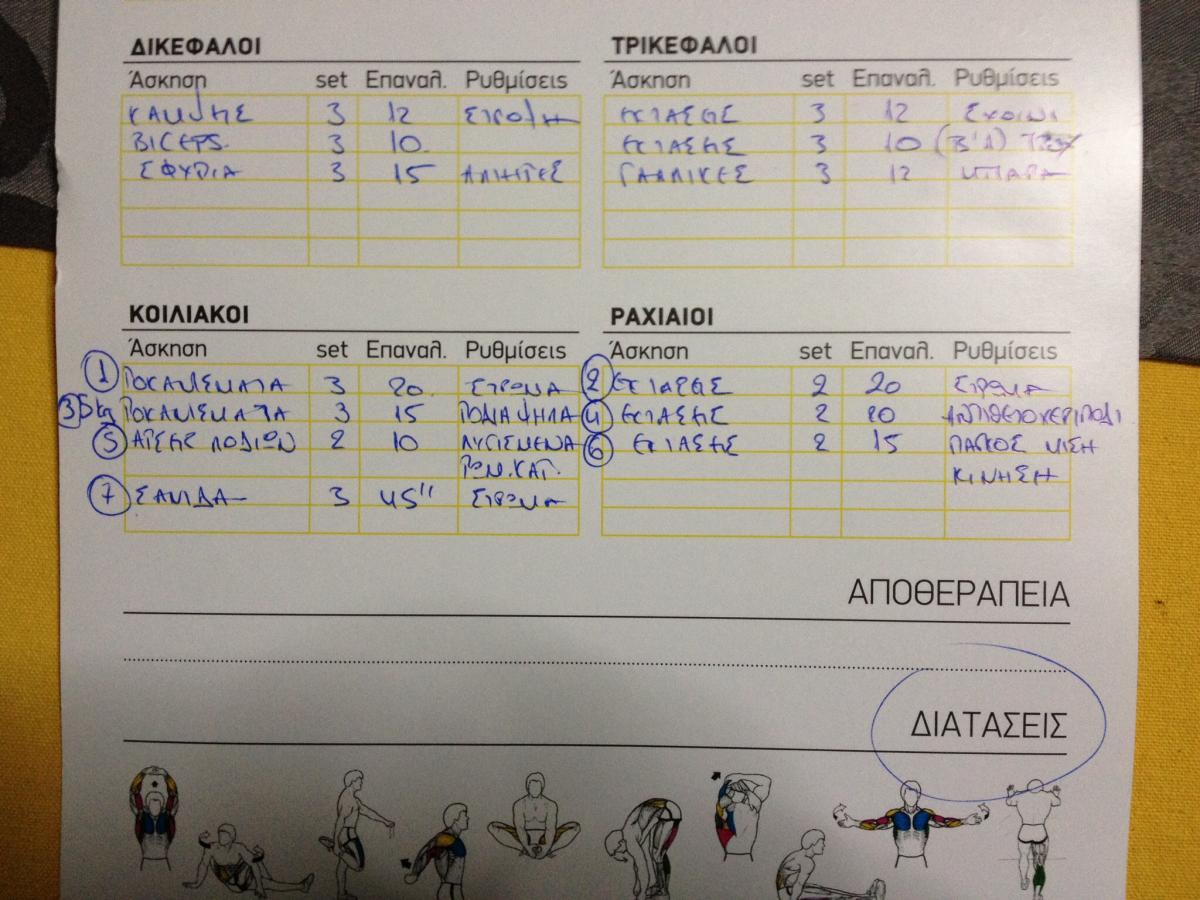 ΔΙΚΕΦΑΛΟΙ
Άσκηση set Επαναλ. Ρυθμίσεις
ΚΑΜΨΗΣ 3 12
BICEPS 3 10
ΣΦΥΡΙΑ 3 15 ΑΛΤΗΡΕΣ
ΤΡΙΚΕΦΑΛΟΙ
Άσκηση set Επαναλ. Ρυθμίσεις
ΕΚΤΑΣΗΣ 3 12 ΣΧΟΙΝΙ
ΕΚΤΑΣΗΣ 3 10
ΓΑΛΛΙΚΕΣ 3 12 ΜΠΑΡΑ
ΚΟΙΛΙΑΚΟΙ
Άσκηση set Επαναλ. Ρυθμίσεις
1 ΡΟΚΑΝΙΣΜΑΤΑ 3 20 ΣΤΡΩΜΑ
3 5kg ΡΟΚΑΝΙΣΜΑΤΑ 3 15 ΠΟΔΙΑ ΨΗΛΑ
5 ΑΡΣΗΣ ΠΟΔΙΩΝ 2 10 ΛΥΓΙΣΜΕΝΑ
7 ΣΑΝΙΔΑ 3 45" ΣΤΡΩΜΑ
ΡΑΧΙΑΙΟΙ
Άσκηση set Επαναλ. Ρυθμίσεις
2 ΕΚΤΑΣΗΣ 2 20 ΣΤΡΩΜΑ
4 ΕΚΤΑΣΗΣ 2 20 ΑΝΤΙΘΕΤΟ ΧΕΡΙ ΠΟΔΙ
6 ΕΚΤΑΣΗΣ 2 15 ΠΑΓΚΟΣ ΜΙΣΗ
ΚΙΝΗΣΗ
ΑΠΟΘΕΡΑΠΕΙΑ
ΔΙΑΤΑΣΕΙΣ